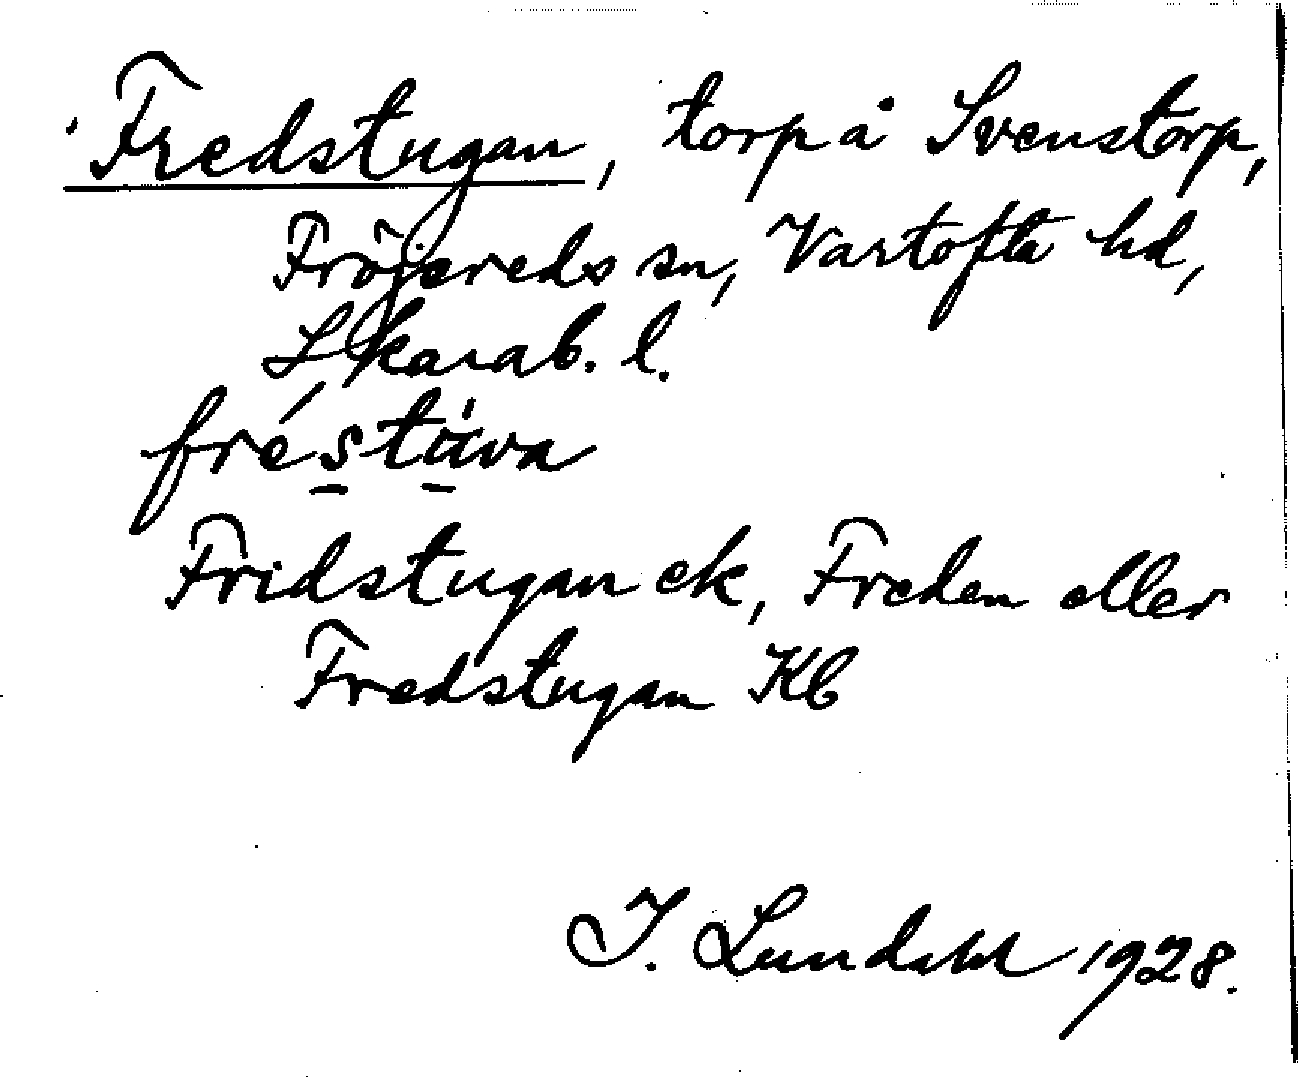 Fredstugan, torp å Svenstorp,
Fröjereds sn, Vartofta hd,
Skarab. l.
fréstùva
Fridstugan ek, Freden eller
Fredstugan Kb
I. Lundahl 1928.